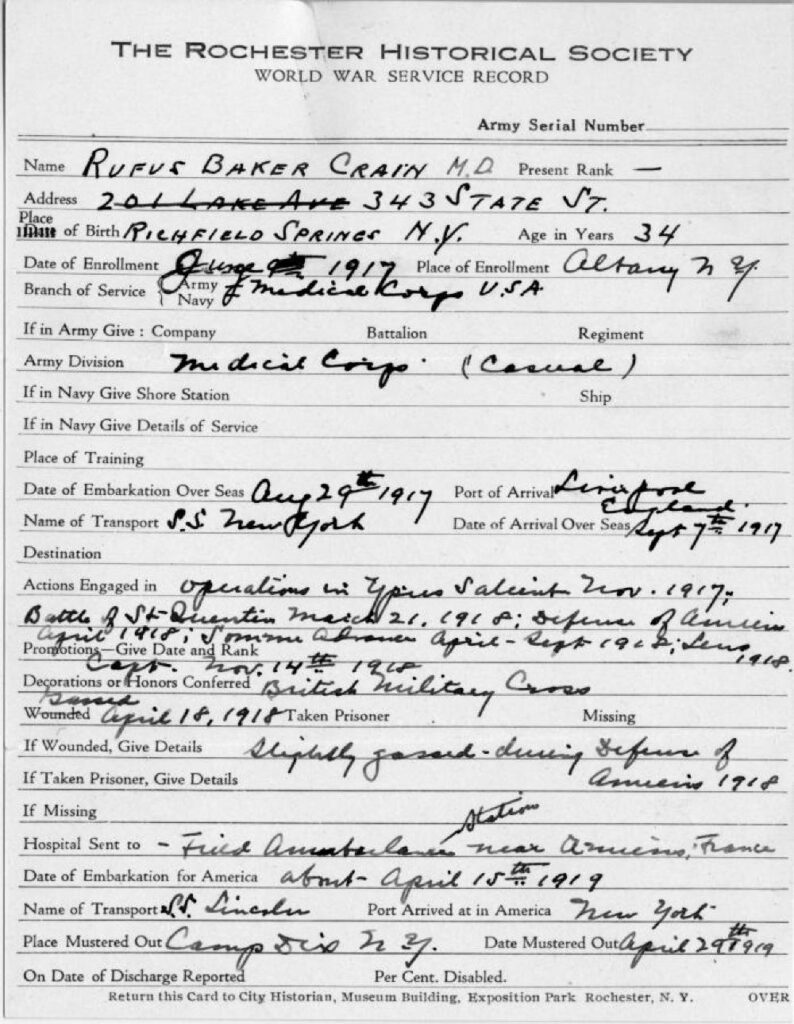 THE ROCHESTER HISTORICAL SOCIETY
WORLD WAR SERVICE RECORD
Army Serial Number
Name RUFUS BAKER CRAIN M.D. Present Rank —
Address 201 LAKE AVE 343 STATE ST.
Place
Date of Birth RICHFIELD SPRINGS N.Y. Age in Years 34
Date of Enrollment June 9th 1917 Place of Enrollment Albany N.Y.
Branch of Service { Army Navy } Medical Corps U.S.A
If in Army Give: Company Battalion Regiment
Army Division Medical Corps. (Casual)
If in Navy Give Shore Station Ship
If in Navy Give Details of Service
Place of Training
Date of Embarkation Over Seas Aug 29th 1917 Port of Arrival Liverpool
England.
Name of Transport S.S. New York Date of Arrival Over Seas Sept 7th 1917
Destination
Actions Engaged in operations in Ypres Salient Nov. 1917;
Battle of St-Quentin March 21, 1918; Defense of Amiens
April 1918; Somme Advance April-Sept 1918; Lens
1918.
Promotions—Give Date and Rank
Capt. Nov. 14th 1918
Decorations or Honors Conferred British Military Cross
gassed
Wounded April 18, 1918 Taken Prisoner Missing
If Wounded, Give Details Slightly gassed-during Defense of
If Taken Prisoner, Give Details Amiens 1918
If Missing
Station
Hospital Sent to - Field Ambulance near Amiens, France
Date of Embarkation for America about- April 15th 1919
Name of Transport S.S. Lincoln Port Arrived at in America New York
Place Mustered Out Camp Dix N.Y. Date Mustered Out April 29th 1919
On Date of Discharge Reported Per Cent. Disabled.
Return this Card to City Historian, Museum Building, Exposition Park Rochester, N. Y. OVER